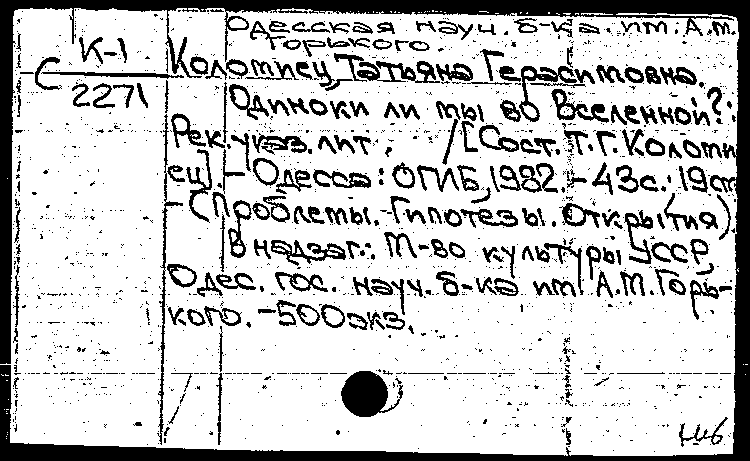 Одесская науч. б-ка им. А.М.
Горького.
К-1
2271
Коломиец, Татьяна Герасимовна.
Одиноки ли мы во Вселенной?:
Рек. указ. лит. / [Сост. Т.Г. Коломи
ец]. - Одесса: ОГНБ, 1982. - 43с.; 19см
- (Проблемы. Гипотезы. Открытия).
В надзаг.: М-во культуры УССР,
Одес. гос. науч. б-ка им. А.М. Горь-
кого. - 500 экз.